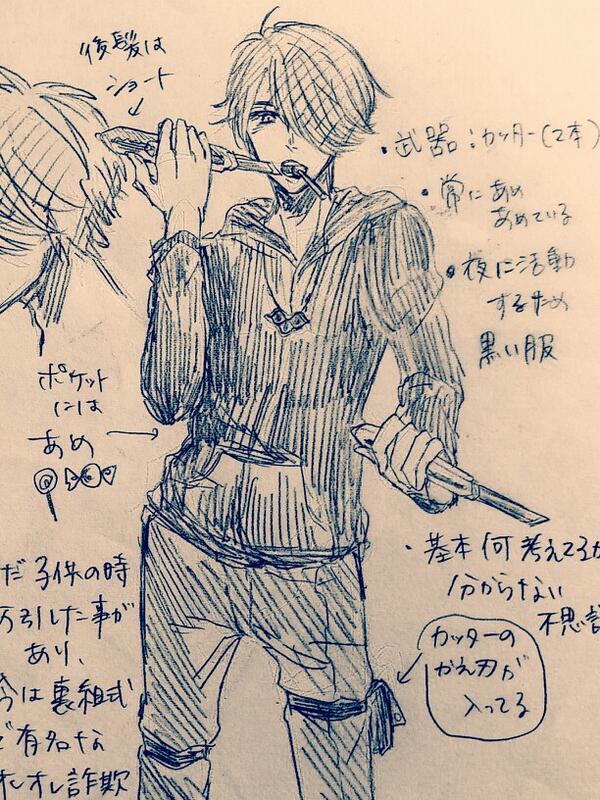 後髪は
ショート
・武器:カッター(2本)
・常にあめ
あめている
・夜に活動
するため
黒い服
ポケット
には
あめ
・基本何考えてるか
分からない
不思議
カッターの
かえ刃が
入ってる
だ子供の時
万引した事が
あり、
今は裏組式
で有名な
オレオレ詐欺